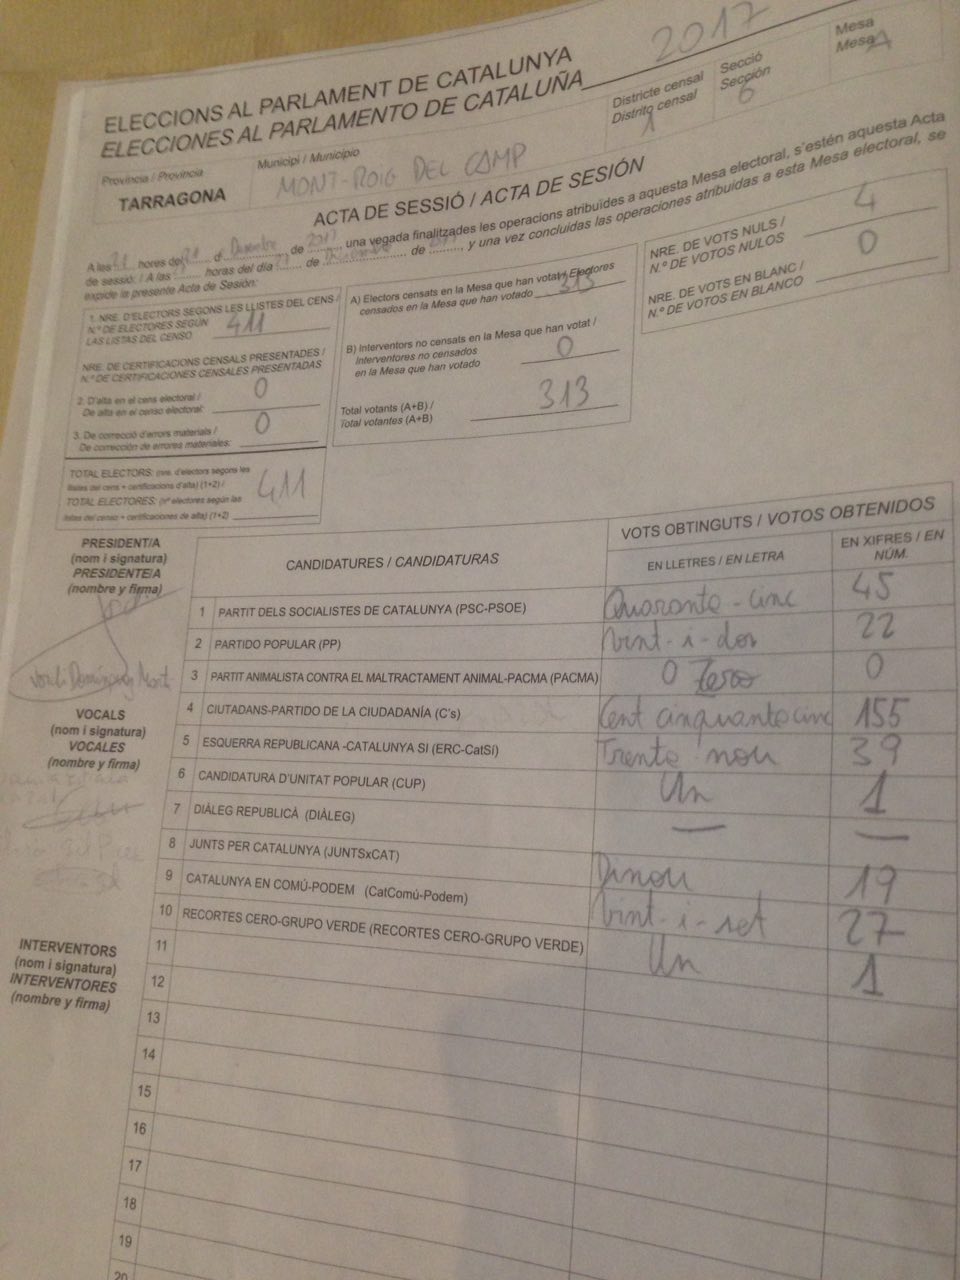 2017
ELECCIONS AL PARLAMENT DE CATALUNYA
ELECCIONES AL PARLAMENTO DE CATALUÑA
Província / Provincia
TARRAGONA
Municipi / Municipio
MONT-ROIG DEL CAMP
Districte censal
Distrito censal
1
Secció
Sección
6
Mesa
Mesa
A
ACTA DE SESSIÓ / ACTA DE SESIÓN
A les 21 hores del 21 d Desembre de 2017, una vegada finalitzades les operacions atribuïdes a aquesta Mesa electoral, s'estén aquesta Acta
de sessió. / A las horas del día de de , y una vez concluidas las operaciones atribuidas a esta Mesa electoral, se
expide la presente Acta de Sesión:
1. NRE. D'ELECTORS SEGONS LES LLISTES DEL CENS /
N.º DE ELECTORES SEGÚN
LAS LISTAS DEL CENSO 411
NRE. DE CERTIFICACIONS CENSALS PRESENTADES /
N.º DE CERTIFICACIONES CENSALES PRESENTADAS
2. D'alta en el cens electoral /
De alta en el censo electoral: 0
3. De correcció d'errors materials /
De corrección de errores materiales: 0
TOTAL ELECTORS: (nre. d'electors segons les
llistes del cens + certificacions d'alta) (1+2) /
TOTAL ELECTORES: (nº electores según las
listas del censo + certificaciones de alta) (1+2) 411
A) Electors censats en la Mesa que han votat / Electores
censados en la Mesa que han votado 313
B) Interventors no censats en la Mesa que han votat /
Interventores no censados
en la Mesa que han votado 0
Total votants (A+B) /
Total votantes (A+B) 313
NRE. DE VOTS NULS /
N.º DE VOTOS NULOS 4
NRE. DE VOTS EN BLANC /
N.º DE VOTOS EN BLANCO 0
PRESIDENT/A
(nom i signatura)
PRESIDENTE/A
(nombre y firma)
Jordi Domínguez Mont
VOCALS
(nom i signatura)
VOCALES
(nombre y firma)
INTERVENTORS
(nom i signatura)
INTERVENTORES
(nombre y firma)
CANDIDATURES / CANDIDATURAS
VOTS OBTINGUTS / VOTOS OBTENIDOS
EN LLETRES / EN LETRA
EN XIFRES / EN NÚM.
1 PARTIT DELS SOCIALISTES DE CATALUNYA (PSC-PSOE) Quaranta-cinc 45
2 PARTIDO POPULAR (PP) Vint-i-dos 22
3 PARTIT ANIMALISTA CONTRA EL MALTRACTAMENT ANIMAL-PACMA (PACMA) 0 Zero 0
4 CIUTADANS-PARTIDO DE LA CIUDADANÍA (C's) Cent cinquanta cinc 155
5 ESQUERRA REPUBLICANA -CATALUNYA SI (ERC-CatSí) Trenta nou 39
6 CANDIDATURA D'UNITAT POPULAR (CUP) Un 1
7 DIÀLEG REPUBLICÀ (DIÀLEG) — —
8 JUNTS PER CATALUNYA (JUNTSxCAT) Dinou 19
9 CATALUNYA EN COMÚ-PODEM (CatComú-Podem) Vint-i-set 27
10 RECORTES CERO-GRUPO VERDE (RECORTES CERO-GRUPO VERDE) Un 1
11
12
13
14
15
16
17
18
19
20